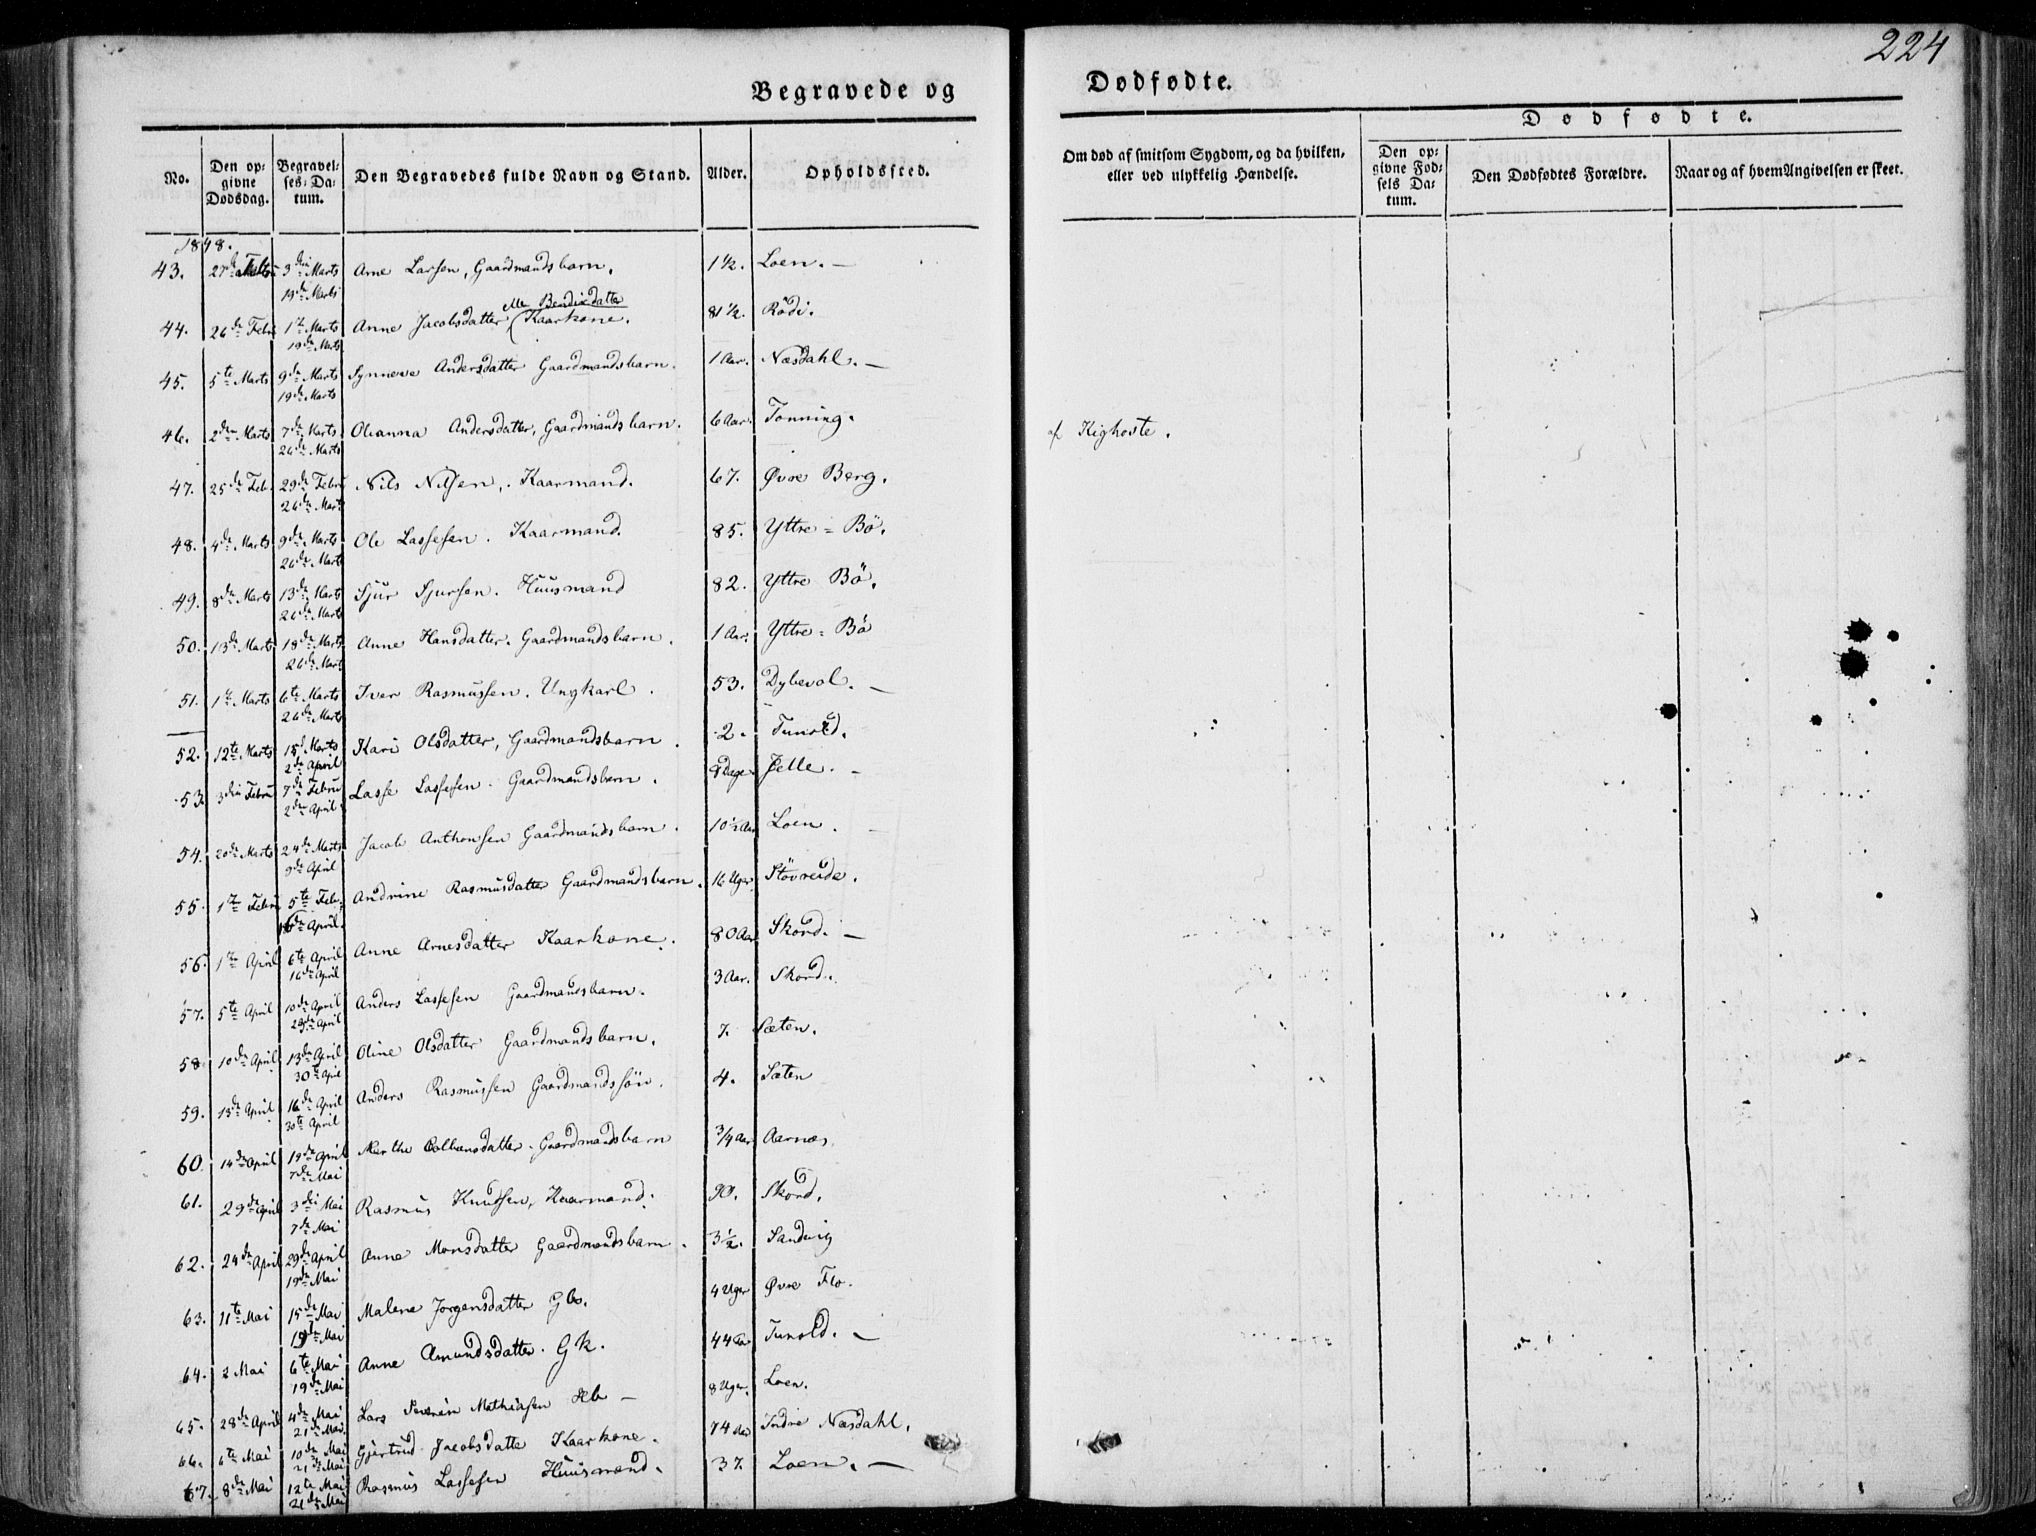 224
Begravede og
Dødfødte.
Dødfødte.
No.
Den op-
givne
Dødsdag.
Begravel-
ses-Da-
tum.
Den Begravedes fulde Navn og Stand.
Alder.
Opholdssted.
Om død af smitsom Sygdom, og da hvilken,
eller ved ulykkelig Hændelse.
Den op-
givne Fød-
sels Da-
tum.
Den Dødfødtes Forældre.
Naar og af hvem Angivelsen er skeet.
1848.
43. 27de 3die Marts Arne Larsen, Gaardmandsbarn. 1½. Loen. —
19de Marts
eller Bendixdatter
44. 26de Febr 1te Marts Anne Jacobsdatter Kaarkone. 81½. Rödi.
19de Marts
45. 5te Marts 9de Marts Synneve Andersdatter Gaardmandsbarn. 1 Aar. Næsdahl. —
19de Marts
46. 2den Marts 7de Marts Olianna Andersdatter, Gaardmandsbarn. 6 Aar. Tonning. af Kighoste.
26de Marts
47. 25de Feb. 29de Febru Nils Nilsen, Kaarmand. 67. Øvre Berg.
26de Marts
48. 4de Marts 9de Marts Ole Lassesen. Kaarmand. 85. Yttre = Bö.
26de Marts
49. 8de Marts 13de Marts Sjur Sjursen. Huusmand 82. Yttre Bö.
26de Marts
50. 13de Marts 18de Marts Anne Hansdatter. Gaardmandsbarn. 1 Aar. Yttre = Bö
26de Marts
51. 1te Marts 6te Marts Iver Rasmussen. Ungkarl. 53. Dybevol. —
26de Marts
52. 12te Marts 15de Marts Kari Olsdatter, Gaardmandsbarn. 2. Tunold.
2den April
53. 3die Febru 7de Febru Lasse Lassesen. Gaardmandsbarn. 8 Dage Jelle. —
2den April
54. 20de Marts 24de Marts Jacob Anthonsen Gaardmandsbarn. 10½ Aar Loen. —
9de April
55. 1te Febru 5te Feb. Andrine Rasmusdatter Gaardmandsbarn. 16 Uger Stövreide.
16de April
56. 1te April 6te April Anne Arnesdatter Kaarkone. 80 Aar Skord. —
16de April
57. 5te April 10de April Anders Lassesen Gaardmandsbarn. 3 Aar. Skord.
29de April
58. 10de April 13de April Oline Olsdatter Gaardmandsbarn. 7. Sæten.
30te April
59. 13de April 16de April Anders Rasmussen Gaardmandssön. 4. Sæten
30te April
60. 14de April 19de April Marthe Colbansdatter. Gaardmandsbarn ¾ Aar Aarnæs.
7de Mai
61. 29de April 3die Mai Rasmus Knudsen, Kaarmand. 90. Skord.
7de Mai
62. 24de April 29de April Anne Monsdatter Gaardmandsbarn. 3½. Sandvig
19de Mai
63. 11te Mai 15de Mai Malene Jorgensdatter Gb. 4 Uger Øvre Flo.
19de Mai
64. 2 Mai 6te Mai Anne Amundsdatter. Gk. 44 Tunold. —
19de Mai
65. 28de April 4de Mai Lars Severin Mathiasen Hb — 8 Uger. Loen.
21de Mai
66. 6te Mai 10de Mai Gjertrud Jacobsdatter Kaarkone. 74 Aar Indre Næsdahl.
21de Mai
67. 8de Mai 12te Mai Rasmus Lassesen Huusmand. 37. Loen. —
21de Mai